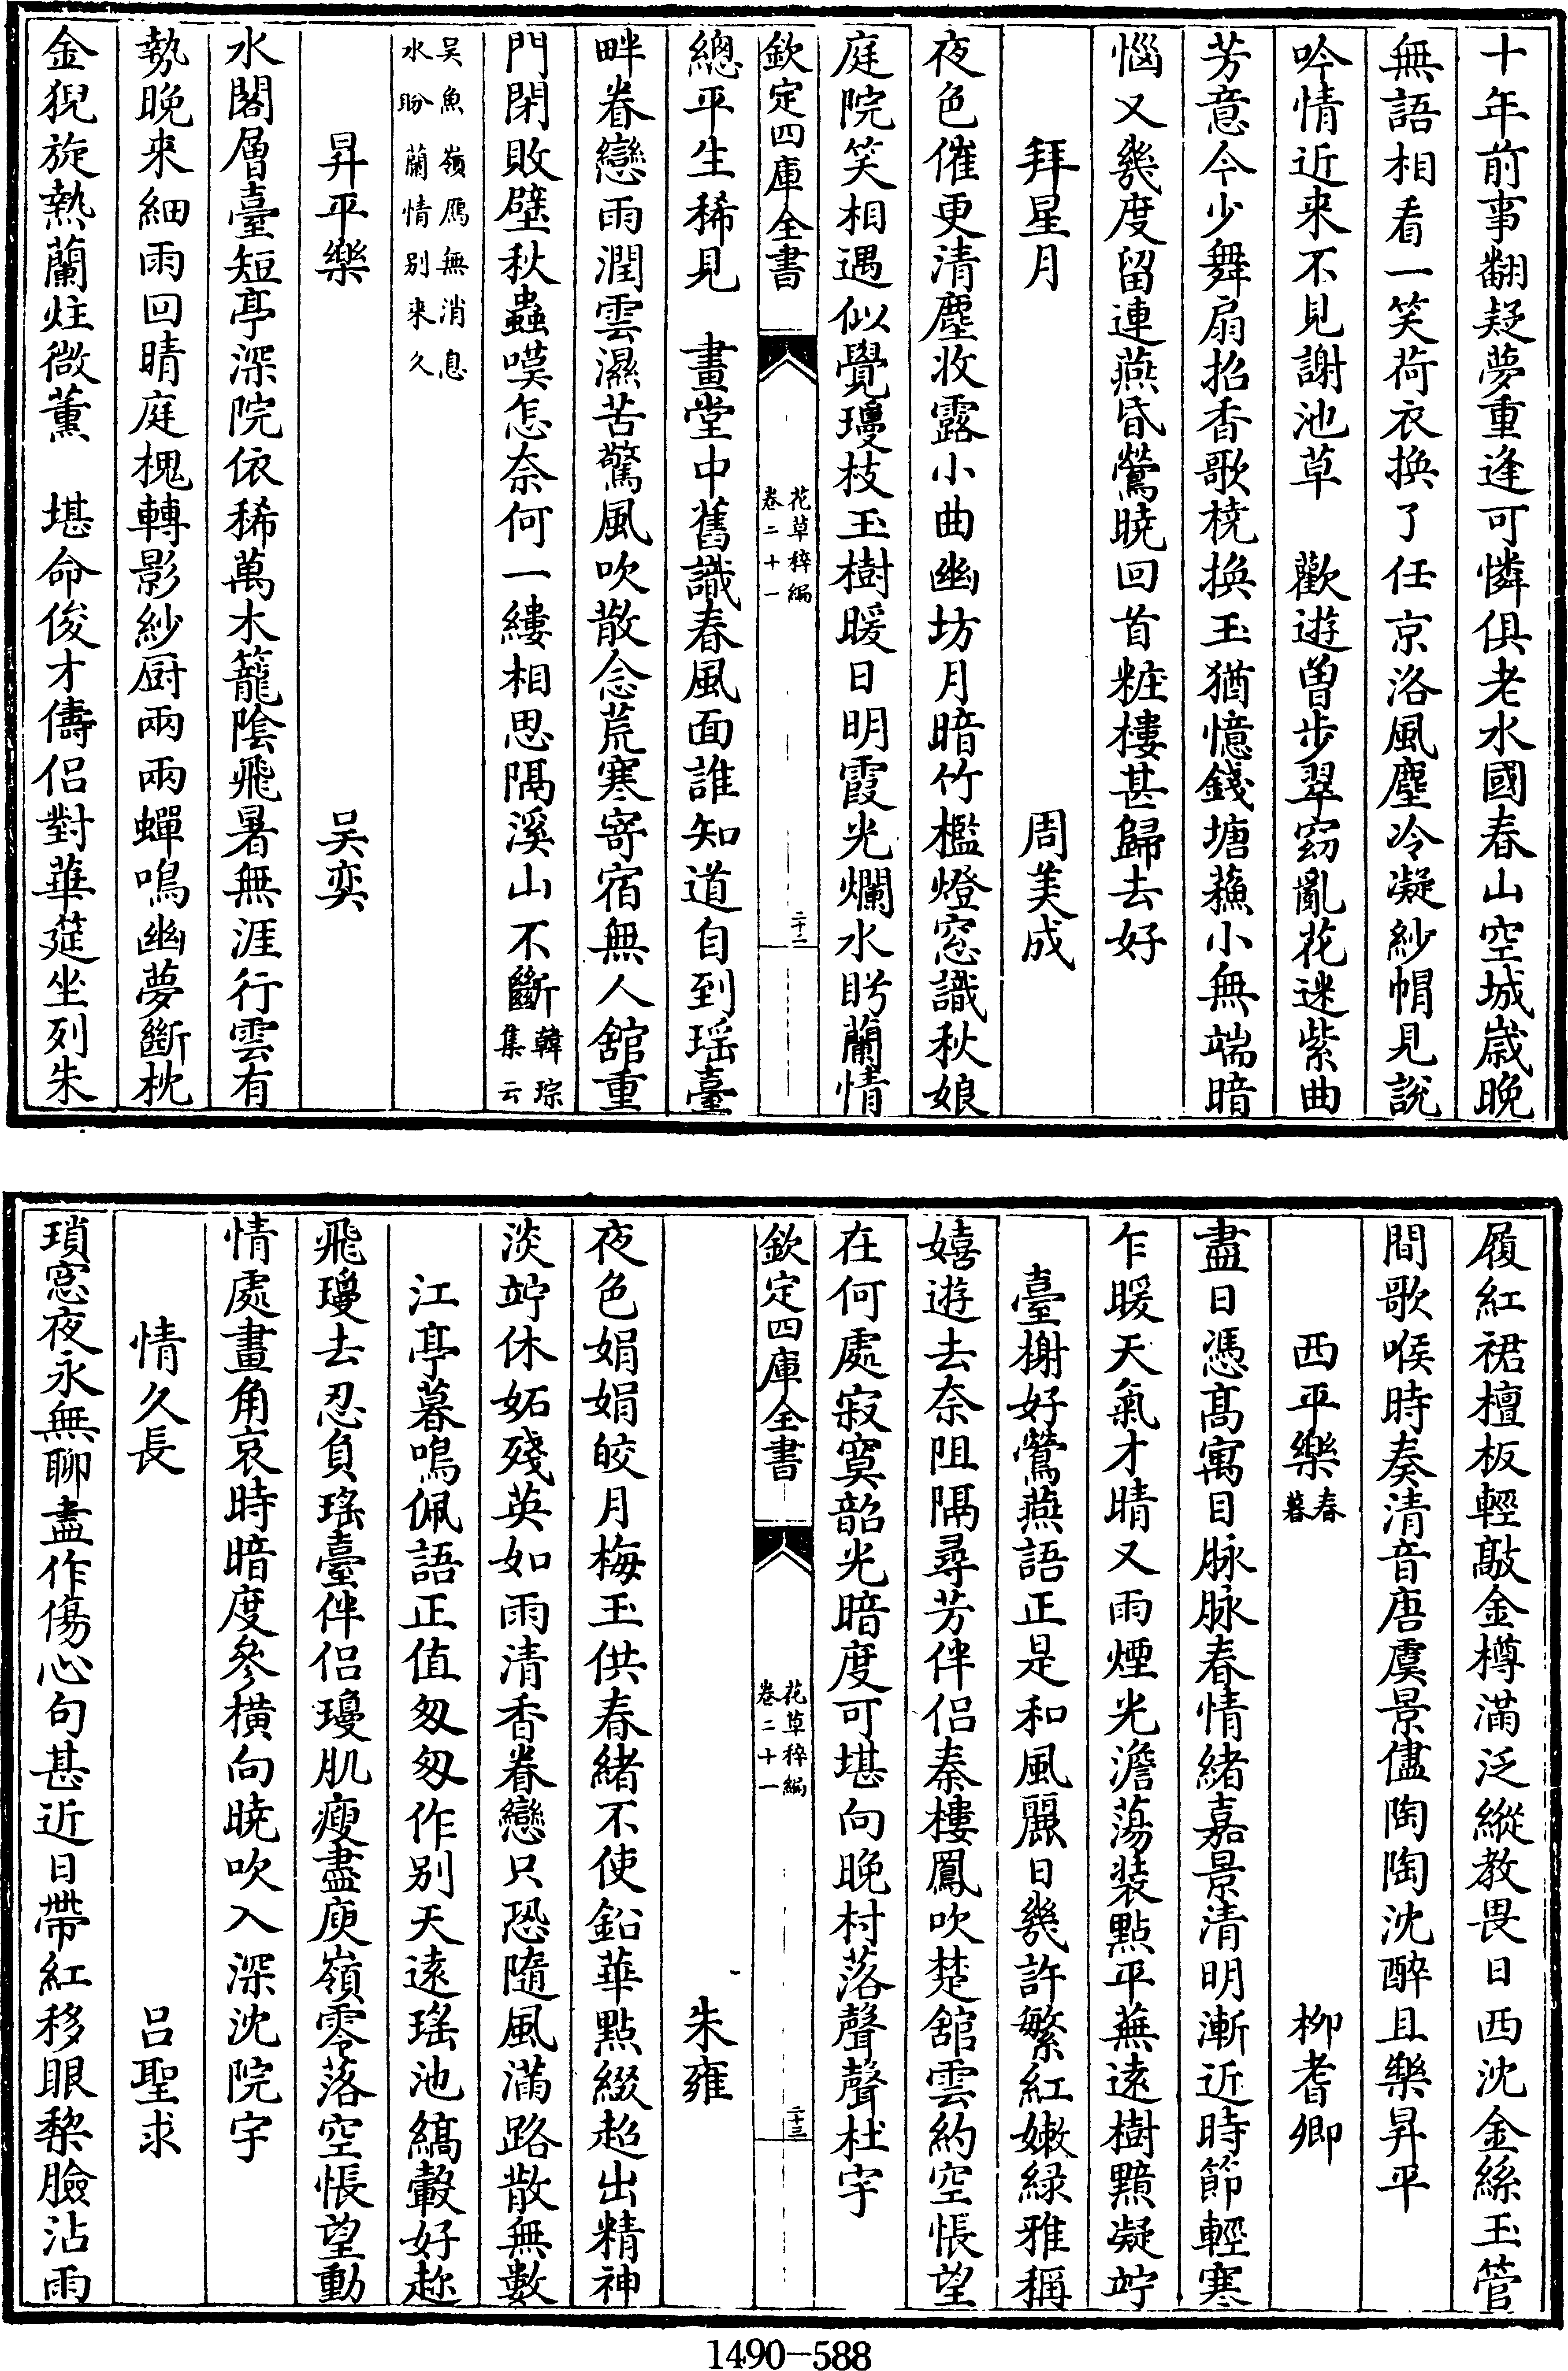 十年前事翻疑夢重逢可憐俱老水國春山空城歲晚
無語相看一笑荷衣换了任京洛風塵冷凝紗帽見說
吟情近來不見謝池草　歡遊曾步翠窈亂花迷紫曲
芳意今少舞扇招香歌橈换玉猶憶錢塘蘓小無端暗
惱又幾度留連燕昏鶯曉回首粧樓甚歸去好
拜星月　周美成
夜色催更清塵收露小曲幽坊月暗竹檻燈窓識秋娘
庭院笑相遇似覺瓊枝玉樹暖日明霞光爛水眄蘭情
欽定四庫全書　花草稡編卷二十一　二十二
總平生稀見　畫堂中舊識春風面誰知道自到瑶臺
畔眷戀雨潤雲濕苦驚風吹散念荒寒寄宿無人舘重
門閉敗壁秋蟲嘆怎奈何一縷相思隔溪山不斷韓琮集云
吴魚嶺鴈無消息水盼蘭情别來久
昇平樂　吴奕
水閣層臺短亭深院依稀萬木籠陰飛暑無涯行雲有
勢晚來細雨回晴庭槐轉影紗厨兩兩蟬鳴幽夢斷枕
金猊旋熱蘭炷微薰　堪命俊才儔侣對華筵坐列朱
履紅裙檀板輕敲金樽滿泛縱教畏日西沈金絲玉管
間歌喉時奏清音唐虞景儘陶陶沈醉且樂昇平
西平樂春暮　柳耆卿
盡日憑髙寓目脉脉春情緒嘉景清明漸近時節輕寒
乍暖天氣才晴又雨煙光澹蕩装點平蕪遠樹黯凝竚
臺榭好鶯燕語正是和風麗日幾許繁紅嫩緑雅稱
嬉遊去奈阻隔尋芳伴侣秦樓鳳吹楚舘雲約空悵望
在何處寂寞韶光暗度可堪向晚村落聲聲杜宇
欽定四庫全書　花草稡編卷二十一　二十三
朱雍
夜色娟娟皎月梅玉供春緒不使鉛華點綴超出精神
淡竚休妬殘英如雨清香眷戀只恐隨風滿路散無數
江亭暮鳴佩語正值匆匆作别天遠瑶池縞轂好趂
飛瓊去忍負瑶臺伴侣瓊肌瘦盡庾嶺零落空悵望動
情處畫角哀時暗度參橫向曉吹入深沈院宇
情久長　吕聖求
瑣窓夜永無聊盡作傷心句甚近日帶紅移眼棃臉沾雨
1490-588